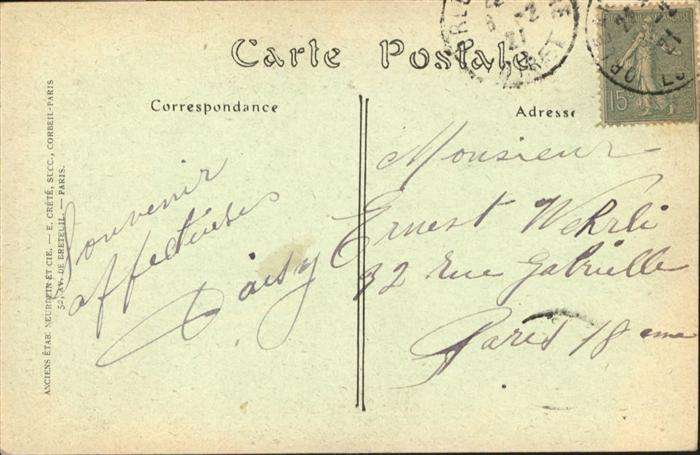 Carte Postale
Correspondance
Adresse
Souvenir
affectueux
Daisy
Monsieur
Ernest Wehrli
32 Rue Gabrielle
Paris 18 eme
ANCIENS ÉTAB. NEURDEIN ET CIE. — E. CRÉTÉ, SUCC., CORBEIL-PARIS
50, AV. DE BRETEUIL. — PARIS.
15
21
LOIRET